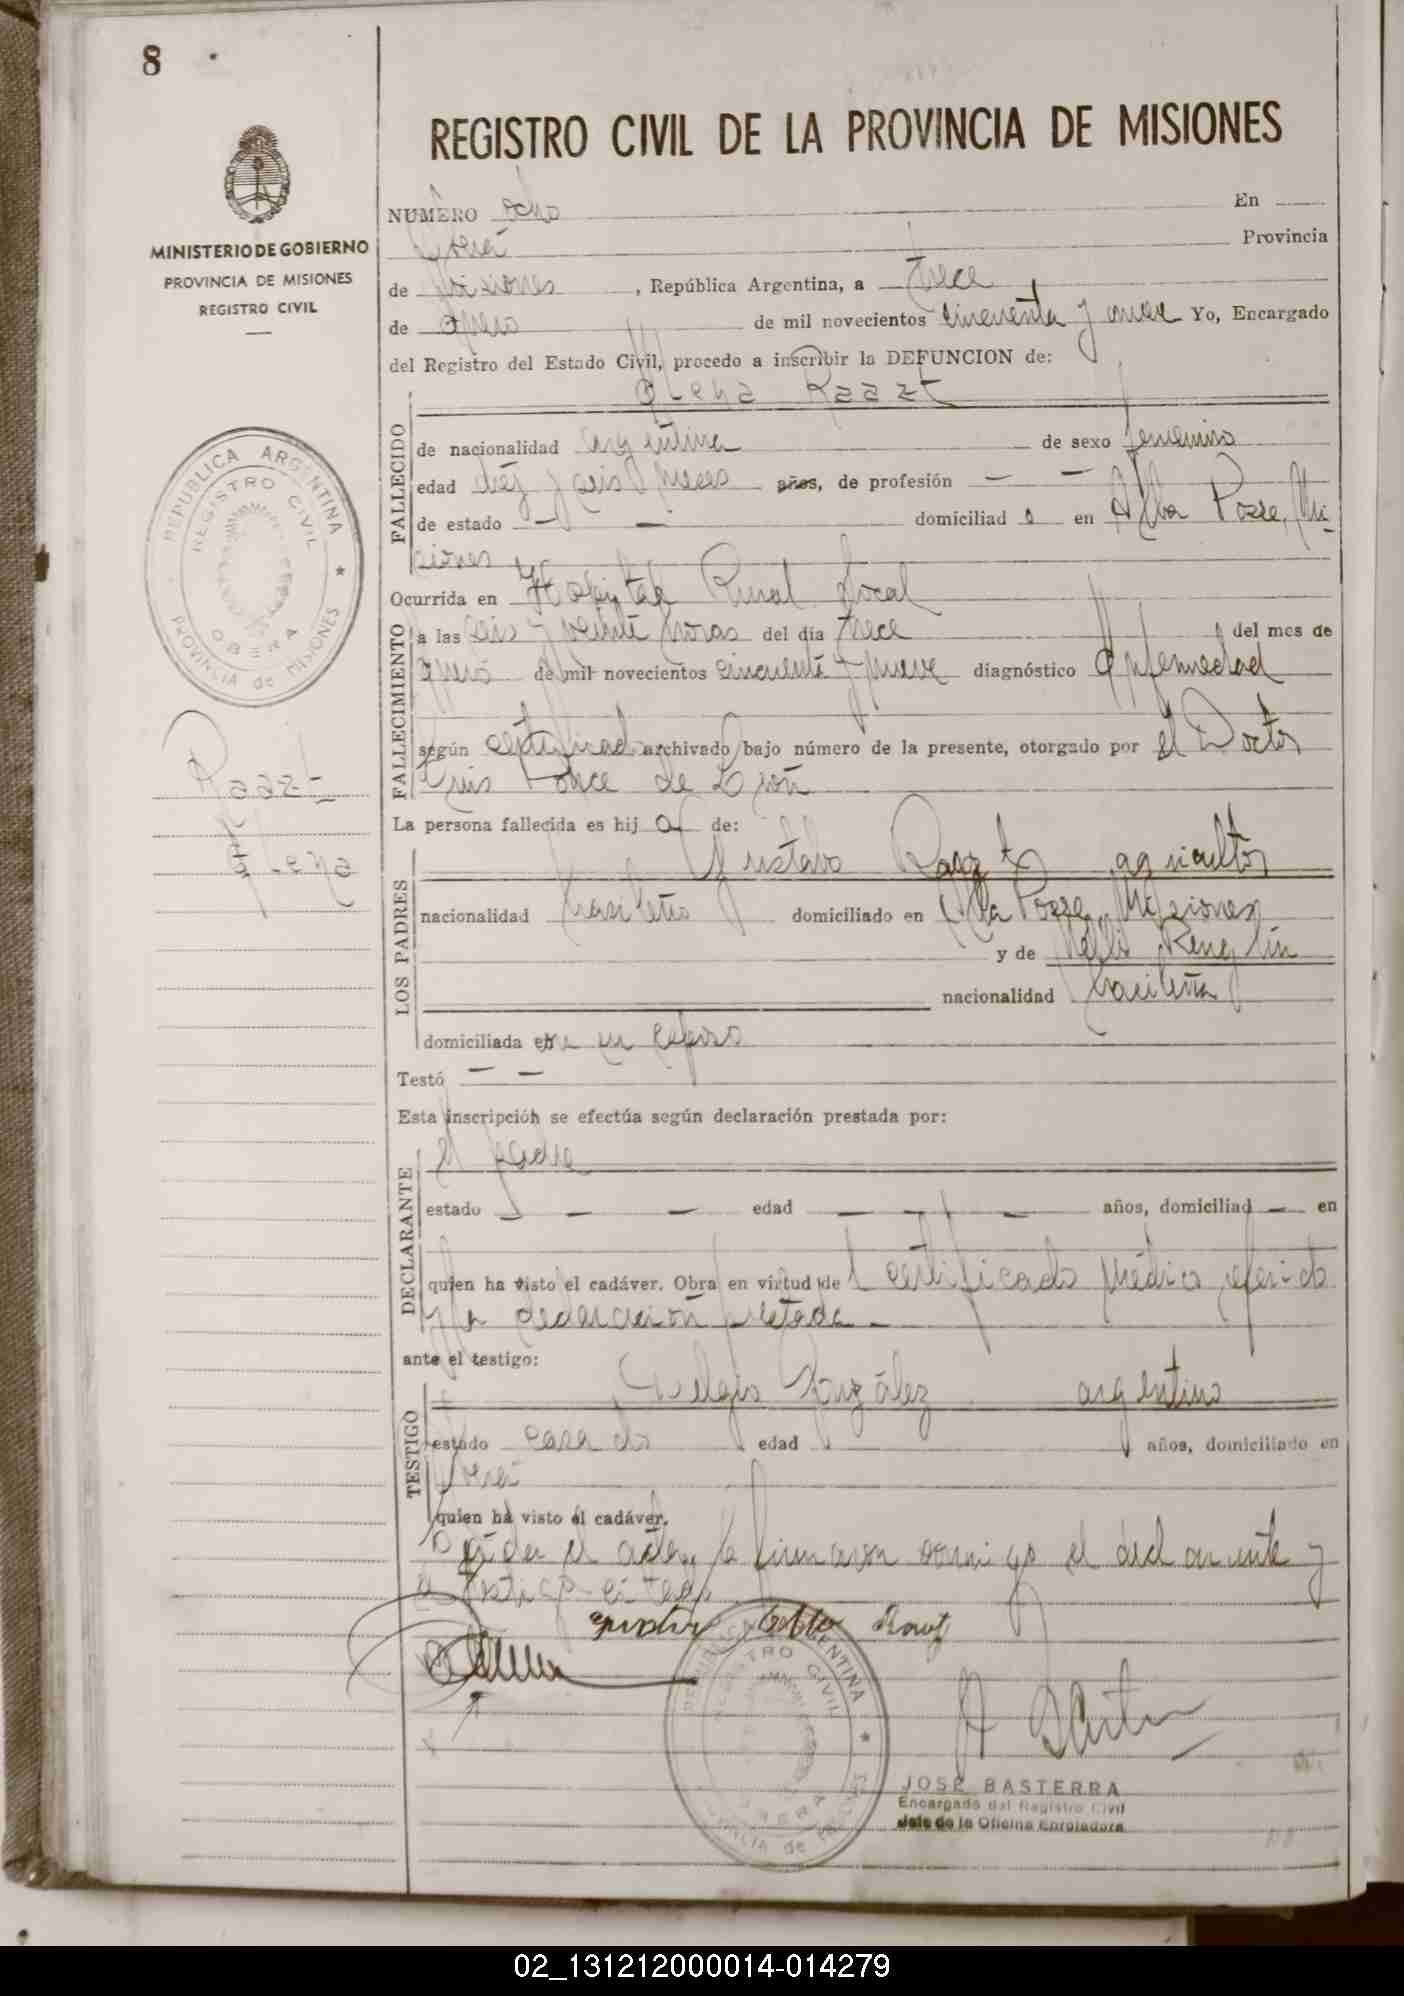 8
REGISTRO CIVIL DE LA PROVINCIA DE MISIONES
MINISTERIO DE GOBIERNO
PROVINCIA DE MISIONES
REGISTRO CIVIL
NUMERO ocho En
Oberá Provincia
de Misiones, República Argentina, a trece
de enero de mil novecientos cincuenta y nueve Yo, Encargado
del Registro del Estado Civil, procedo a inscribir la DEFUNCION de:
Raazt
FALLECIDO
de nacionalidad argentina de sexo femenino
edad diez y seis meses años, de profesión — —
de estado — — domiciliad a en Alba Posse, Mi-
siones
REPUBLICA ARGENTINA
REGISTRO CIVIL
OBERA
PROVINCIA de MISIONES
FALLECIMIENTO
Ocurrida en Hospital Rural local
a las seis y veinte horas del día trece del mes de
enero de mil novecientos cincuenta y nueve diagnóstico Enfermedad
según certificado archivado bajo número de la presente, otorgado por el Doctor
Luis Ponce de León
Raazt
La persona fallecida es hij a de:
LOS PADRES
Gustavo Raazt agricultor
nacionalidad brasileño domiciliado en Alba Posse, Misiones
y de
nacionalidad brasileña
domiciliada en su esposo
Testó — —
Esta inscripción se efectúa según declaración prestada por:
DECLARANTE
el padre
estado — — — edad — — — años, domiciliad — en
quien ha visto el cadáver. Obra en virtud de l certificado médico referido
y la declaración prestada
ante el testigo:
TESTIGO
González argentino
estado casado edad años, domiciliado en
Oberá
quien ha visto el cadáver.
el acta, la firmaron conmigo el declarante y
el testigo citado
REPUBLICA ARGENTINA
REGISTRO CIVIL
OBERA
PROVINCIA de MISIONES
JOSE BASTERRA
Encargado del Registro Civil
Jefe de la Oficina Enroladora
02_131212000014-014279